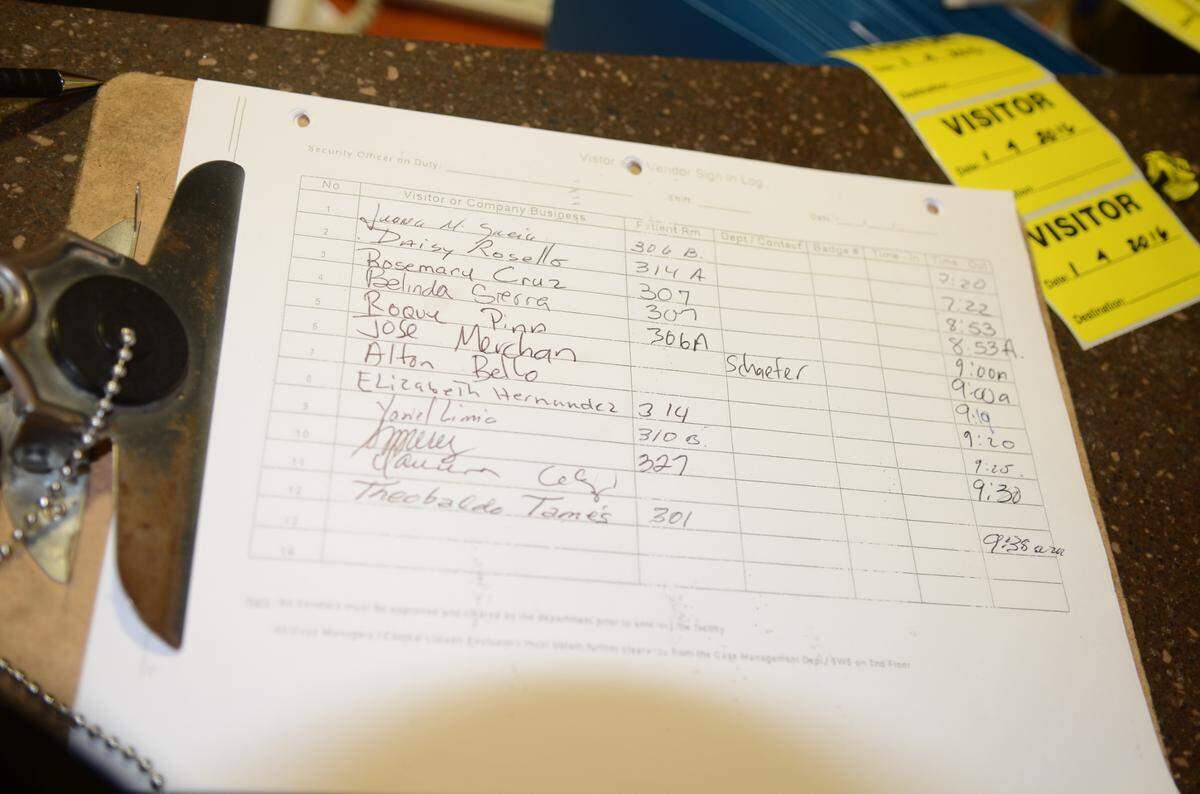 VISITOR
Date: 1 4 2016
Destination:
VISITOR
Date: 1 4 2016
Destination:
Security Officer on Duty:
Visitor Vendor Sign In Log
Shift
Date
No Visitor or Company Business Patient Rm Dept / Contact Badge # Time - In Time - Out
1 Juana M. 306 B. 7:20
2 Daisy Rosello 314 A 7:22
3 Rosemary Cruz 307 8:53
4 Belinda Sierra 307 8:53A.
5 Roque Pino 306A 9:00
6 Jose Merchan Schaefer 9:00a
7 Alton Bello 9:19
8 Elizabeth Hernandez 314 9:20
9 Yaniel 310 B. 9:25.
10 327 9:30
11
12 Theobaldo Tamés 301 9:38 am
13
14
must be approved and cleared by the department prior to the facility
Case Managers / Clinical Liaison Evaluators must obtain further clearance from the Case Management Dept./ SWS on 2nd Floor